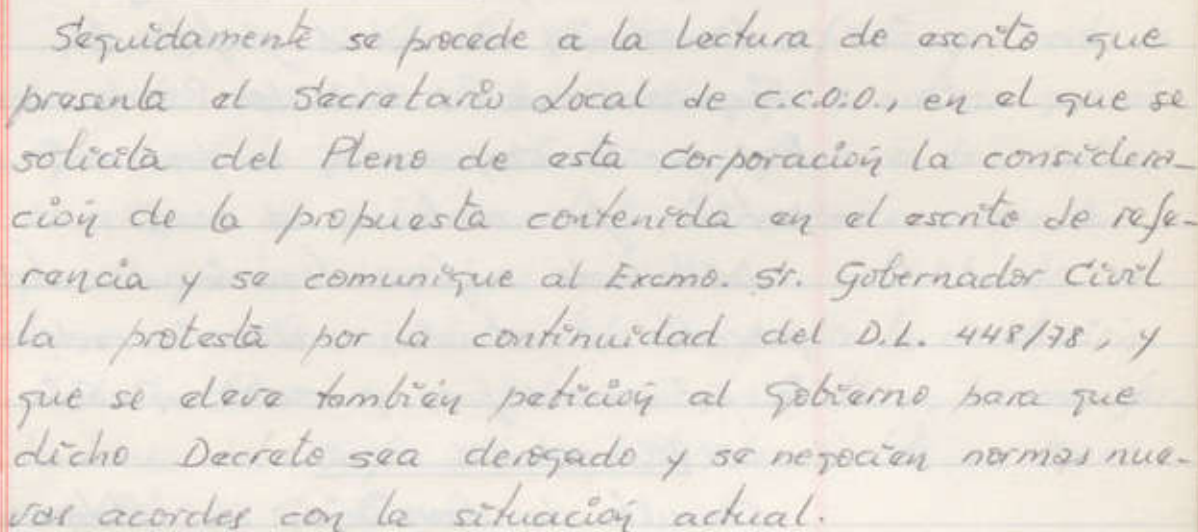 Seguidamente se procede a la Lectura de escrito que
presenta el Secretario Local de C.C.O.O., en el que se
solicita del Pleno de esta Corporación la considera-
ción de la propuesta contenida en el escrito de refe-
rencia y se comunique al Excmo. Sr. Gobernador Civil
la protesta por la continuidad del D.L. 448/78, y
que se eleve también petición al Gobierno para que
dicho Decreto sea derogado y se negocien normas nue-
vas acordes con la situación actual.